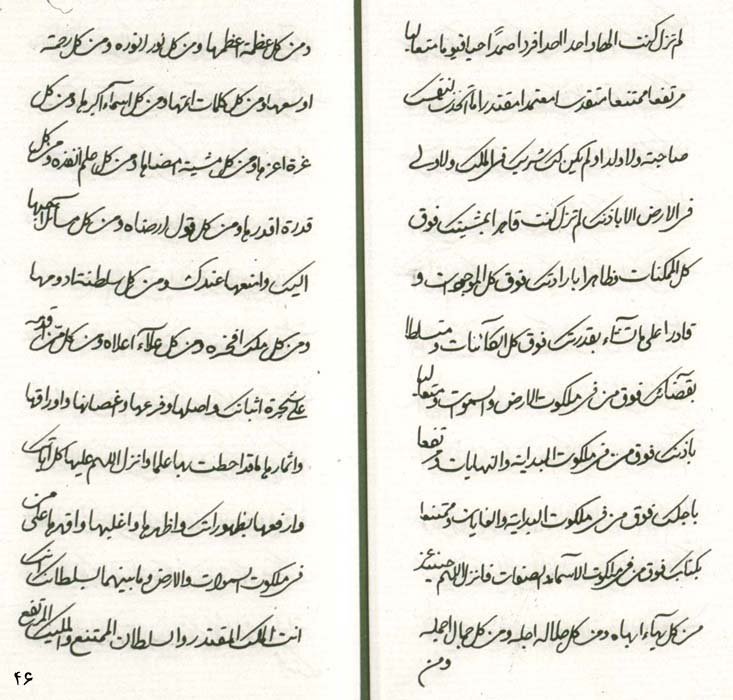 لم تزل كنت الها واحدا احدا صمدا فردا حيا قيوما متعاليا
مرتفعا ممتنعا متقدسا معتمدا مقتدرا ما اتخذت لنفسك
صاحبة ولا ولدا ولم يكن لك شريك فى الملك ولا ولى
فى الارض الا باذنك لم تزل كنت قاهرا بمشيتك فوق
كل الممكنات وظاهرا بارادتك فوق كل الموجودات و
قادرا على ما تشاء بقدرتك فوق كل الكائنات ومتسلطا
بقضائك فوق من فى ملكوت الارض والسموات ومتعاليا
باذنك فوق من فى ملكوت البداية والنهايات ومرتفعا
باجلك فوق من فى ملكوت البداية والغايات وممتنعا
بكتابك فوق من فى ملكوت الاسماء والصفات فانزل اللهم حينئذ
من كل بهاء ابهاه ومن كل جلال اجله ومن كل جمال اجمله
ومن
ومن كل عظمة اعظمها ومن كل نور انوره ومن كل رحمة
اوسعها ومن كل كلمات اتمها ومن كل اسماء اكبرها ومن كل
عزة اعزها ومن كل مشية امضاها ومن كل علم انفذه ومن كل
قدرة اقدرها ومن كل قول ارضاه ومن كل مسائل احبها
اليك وامنعها عندك ومن كل سلطنة ادومها
ومن كل ملك افخره ومن كل علاء اعلاه ومن كل من اقدمه
على شجرة اثباتك واصلها وفرعها وغصانها واوراقها
واثمارها ما قد احطت بها علما وانزل اللهم عليها كل اياتك
وارفعها بظهوراتك واظهرها واغلبها واقهرها على من
فى ملكوت السموات والارض وما بينهما بسلطانك انك
انت الملك المقتدر والسلطان الممتنع والمليك المرتفع
۴۶